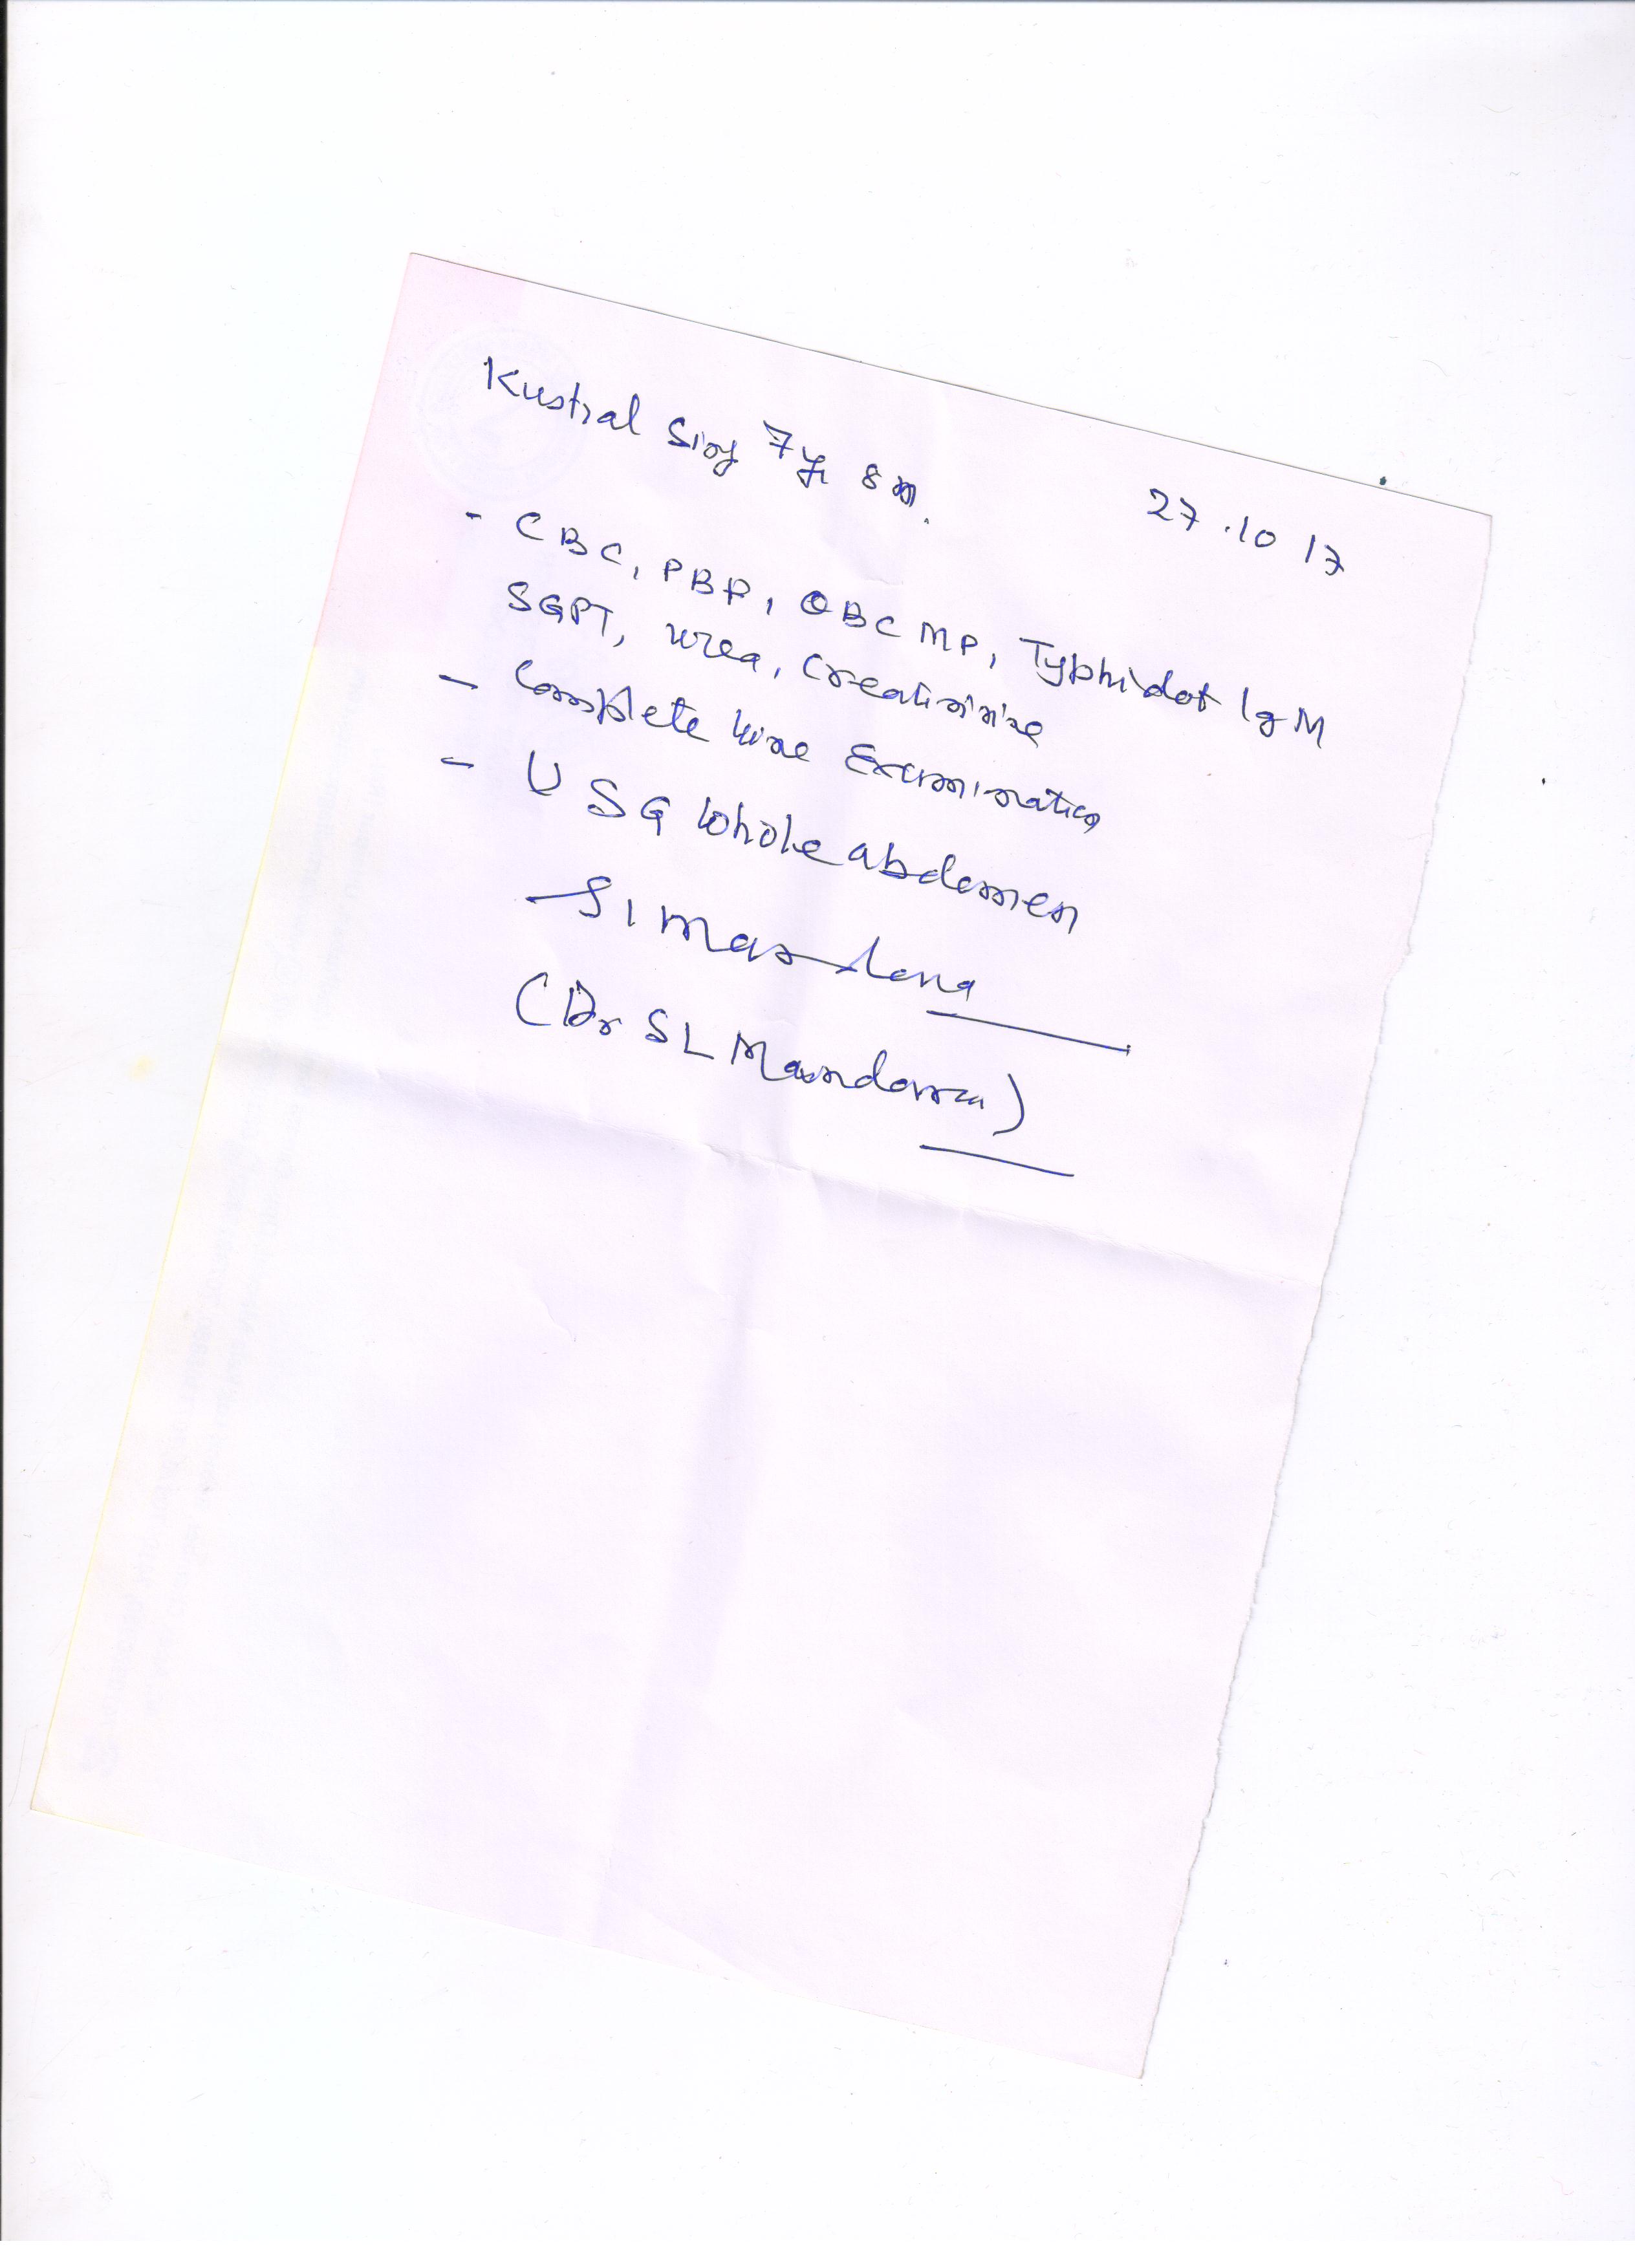 Kushal Sing 7 yr 8 m.
27.10 17
- CBC, PBF, QBC MP, Typhidot IgM
SGPT, urea, Creatinine
- Complete urine Examination
- USG whole abdomen
(Dr S L Mandowra)